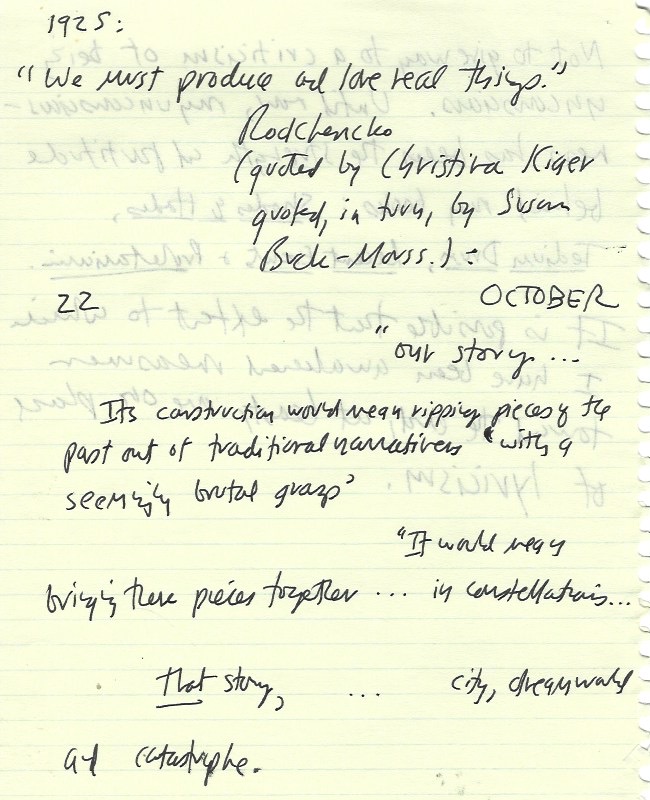 1925:
"We must produce and love real things."
Rodchencko
(quoted by Christina Kiaer
quoted, in turn, by Susan
Buck-Morss.) :
22 OCTOBER
"our story ...
Its construction would mean ripping pieces of the
past out of traditional narratives 'with a
seemingly brutal grasp'
"It would mean
bringing these pieces together ... in constellations...
that story, ... city, dreamworld
and catastrophe.